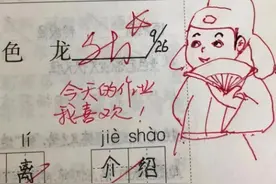 色 龙 9/26
今天的作业
我喜欢！
lí jiè shào
离 介 绍